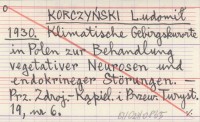 KORCZYŃSKI Ludomił
1930. Klimatische Gebirgskurorte
in Polen zur Behandlung
vegetativer Neurosen und
endokrineger Störungen. —
Prz. Zdroj.-Kąpiel. i Przew. Turyst.
19, no 6.